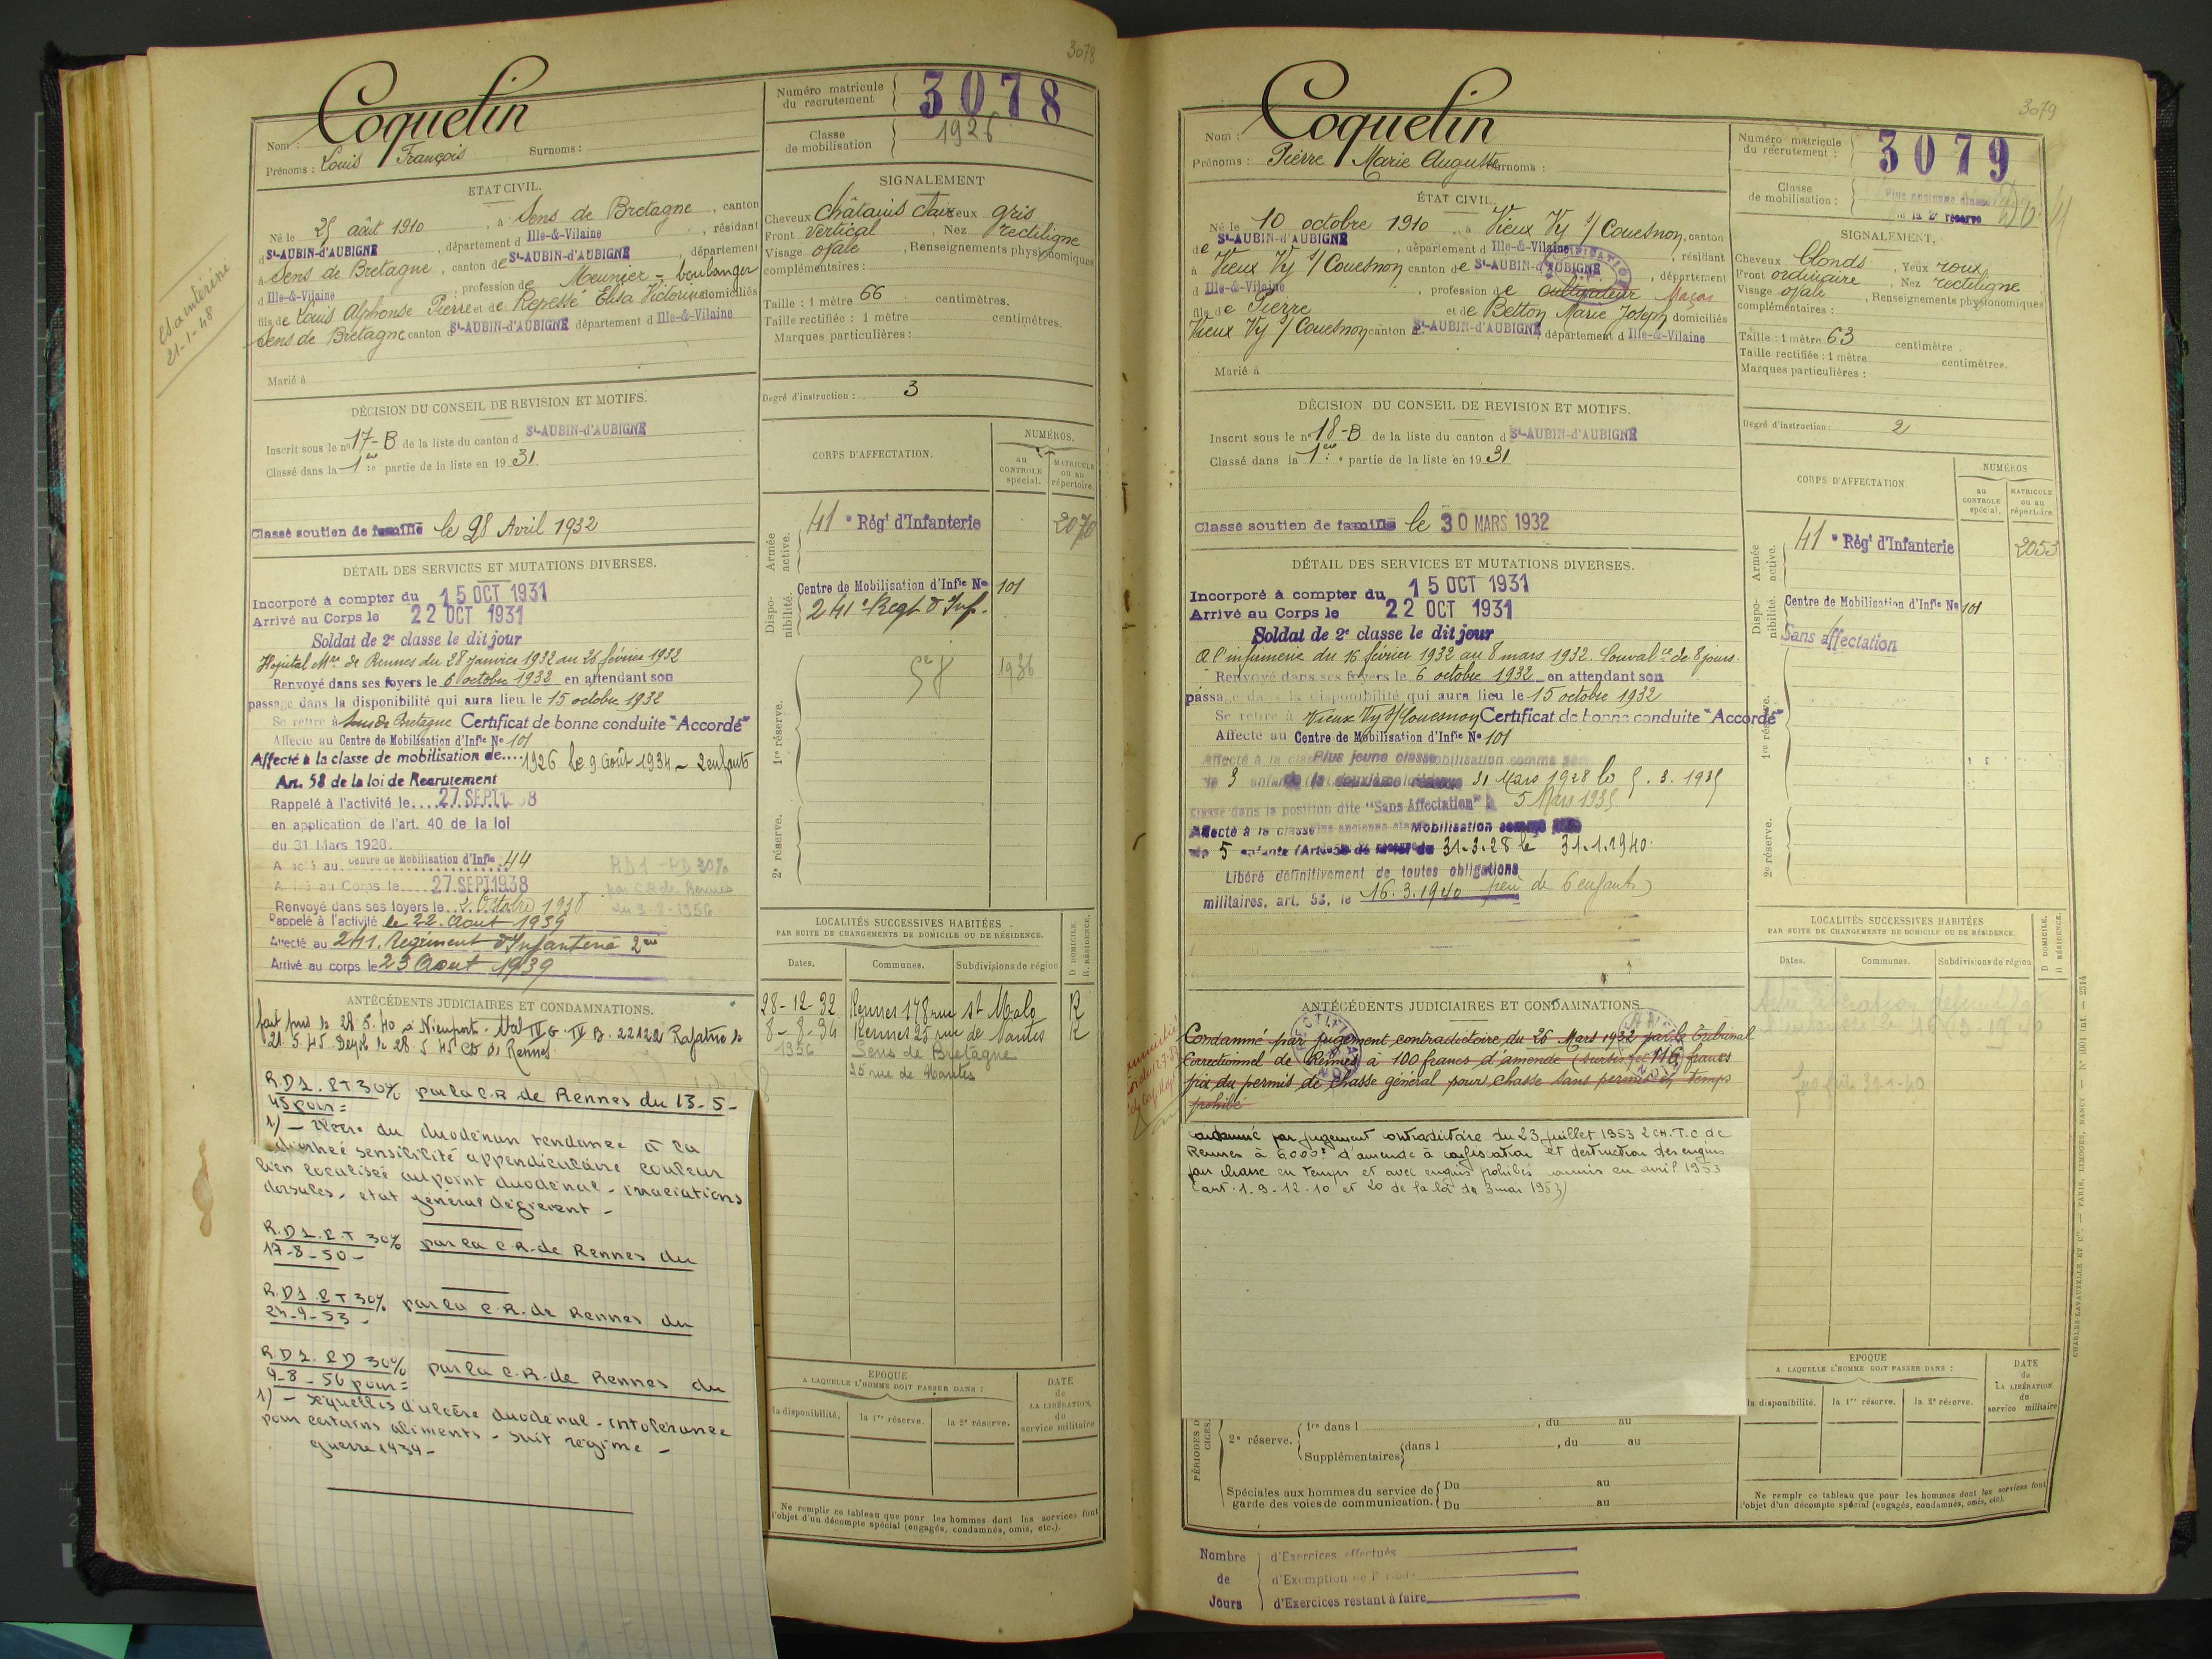 3078
Nom : Coquelin
Prénoms : Louis François Surnoms :
Numéro matricule du recrutement 3078
Classe de mobilisation 1926
ETAT CIVIL.
Né le 25 août 1910, à Sens de Bretagne, canton
d St-AUBIN-d'AUBIGNÉ, département d Ille-&-Vilaine, résidant
à Sens de Bretagne, canton de St-AUBIN-d'AUBIGNÉ, département
d Ille-&-Vilaine, profession de Meunier - boulanger
fils de Louis Alphonse Pierre et de Repessé Elisa Victorine domiciliés
Sens de Bretagne canton d St-AUBIN-d'AUBIGNÉ département d Ille-&-Vilaine
Marié à
SIGNALEMENT
Cheveux châtains clair eux gris
Front vertical, Nez rectiligne
Visage ovale, Renseignements physionomiques
complémentaires :
Taille : 1 mètre 66 centimètres.
Taille rectifiée : 1 mètre centimètres.
Marques particulières :
Degré d'instruction : 3
DÉCISION DU CONSEIL DE REVISION ET MOTIFS.
Inscrit sous le no 17-B de la liste du canton d St-AUBIN-d'AUBIGNÉ
Classé dans la 1re partie de la liste en 1931.
Classé soutien de famille le 28 Avril 1932
DÉTAIL DES SERVICES ET MUTATIONS DIVERSES.
Incorporé à compter du 15 OCT 1931
Arrivé au Corps le 22 OCT 1931
Soldat de 2e classe le dit jour
Hôpital Mre de Rennes du 28 janvier 1932 au 26 février 1932
Renvoyé dans ses foyers le 6 octobre 1932 en attendant son
passage dans la disponibilité qui aura lieu le 15 octobre 1932
Se retire à Sens de Bretagne Certificat de bonne conduite "Accordé"
Affecté au Centre de Mobilisation d'Infie No 101
Affecté à la classe de mobilisation de.... 1926 le 9 Août 1934 - 2 enfants
Art. 58 de la loi de Recrutement
Rappelé à l'activité le.... 27.SEPT1 38
en application de l'art. 40 de la loi
du 31 Mars 1928.
Affecté au Centre de Mobilisation d'Infie 44
Arrivé au Corps le.... 27.SEPT.1938
Renvoyé dans ses foyers le 2 Octobre 1938
RD1 - PD 30%
par C.R de Rennes
du 9-8-1956
Rappelé à l'activité le 22. Aout 1939
Affecté au 241. Régiment d'Infanterie
Arrivé au corps le 23 Aout 1939
CORPS D'AFFECTATION.
NUMÉROS.
au CONTROLE spécial.
MATRICULE ou au répertoire
Armée active.
41e Régt d'Infanterie 2070
Disponibilité.
Centre de Mobilisation d'Infie No 101
241e Regt d'Inf.
1re réserve.
1936
2e réserve.
ANTÉCÉDENTS JUDICIAIRES ET CONDAMNATIONS.
fait pris le 28.5.40 à Nieuport.
R.D1. PT 30% par la C.R de Rennes du 13-5-
45 pour =
1) - Ulcère du duodénum tendance à la
diarrhée sensibilité appendiculaire couleur
bien localisée au point duodénal - irradiations
dorsales - état général déficient -
R.D1. P.T 30% par la C.R. de Rennes du
17-8-50 -
R.D1. P.T 30% par la C.R. de Rennes du
24-9-53 -
R.D1. P.D 30% par la C.R. de Rennes du
9-8-56 pour =
1) - Séquelles d'ulcère duodénal - intolérance
pour certains aliments - suit régime -
guerre 1939 -
LOCALITÉS SUCCESSIVES HABITÉES
PAR SUITE DE CHANGEMENTS DE DOMICILE OU DE RÉSIDENCE.
Dates. Communes. Subdivisions de région D DOMICILE. R. RÉSIDENCE.
28-12-32 Rennes 178 rue St Malo R
8-8-34 Rennes 25 rue de Nantes R
1956 Sens de Bretagne
25 rue de Nantes
EPOQUE
A LAQUELLE L'HOMME DOIT PASSER DANS :
la disponibilité. la 1re réserve. la 2e réserve.
DATE de LA LIBÉRATION du service militaire
Ne remplir ce tableau que pour les hommes dont les services font
l'objet d'un décompte spécial (engagés, condamnés, omis, etc.).
21-1-48
3079
Nom : Coquelin
Prénoms : Pierre Marie Auguste Surnoms :
Numéro matricule du recrutement : 3079
Classe de mobilisation : Plus ancienne classe
de la 2e réserve
ÉTAT CIVIL.
Né le 10 octobre 1910, à Vieux Vy s/ Couesnon, canton
de St-AUBIN-d'AUBIGNÉ, département d Ille-&-Vilaine, résidant
à Vieux Vy s/ Couesnon canton de St-AUBIN-d'AUBIGNÉ, département
d Ille-&-Vilaine, profession de cultivateur Maçon
fils de Pierre et de Betton Marie Joseph domiciliés
Vieux Vy s/ Couesnon canton d St-AUBIN-d'AUBIGNÉ, département d Ille-&-Vilaine
Marié à
SIGNALEMENT.
Cheveux blonds, Yeux roux
Front ordinaire, Nez rectiligne
Visage ovale, Renseignements physionomiques
complémentaires :
Taille : 1 mètre 63 centimètre.
Taille rectifiée : 1 mètre centimètres.
Marques particulières :
Degré d'instruction : 2
DÉCISION DU CONSEIL DE REVISION ET MOTIFS.
Inscrit sous le no 18-B de la liste du canton d St-AUBIN-d'AUBIGNÉ
Classé dans la 1re partie de la liste en 1931
Classé soutien de famille le 30 MARS 1932
DÉTAIL DES SERVICES ET MUTATIONS DIVERSES.
Incorporé à compter du 15 OCT 1931
Arrivé au Corps le 22 OCT 1931
Soldat de 2e classe le dit jour
A l'infirmerie du 16 février 1932 au 8 mars 1932. Convalce de 8 jours.
Renvoyé dans ses foyers le 6 octobre 1932 en attendant son
passage dans la disponibilité qui aura lieu le 15 octobre 1932
Se retire à Vieux Vy s/ Couesnon Certificat de bonne conduite "Accordé"
Affecté au Centre de Mobilisation d'Infie No 101
Affecté à la clas Plus jeune classe mobilisation comme père
de 3 enfan de la deuxième réserve 31 Mars 1928 le 5.3.1935
Classé dans la position dite "Sans Affectation" le 5 Mars 1935
Affecté à la classe plus ancienne classe Mobilisation comme père
de 5 enfants 31.3.28 le 31.1.1940
Libéré définitivement de toutes obligations
militaires, art. 58, le 16.3.1940 père de 6 enfants
CORPS D'AFFECTATION.
NUMÉROS
au CONTROLE spécial.
MATRICULE ou au répertoire
Armée active.
41e Régt d'Infanterie 2053
Disponibilité.
Centre de Mobilisation d'Infie No 101
Sans affectation
1re réserve.
2e réserve.
ANTÉCÉDENTS JUDICIAIRES ET CONDAMNATIONS.
Condamné par jugement contradictoire du 26 Mars 1932 par le Tribunal
Correctionnel de Rennes à 100 francs d'amende (sursis) et 116 francs
prix du permis de chasse général pour chasse sans permis en temps
prohibé
Condamné par jugement contradictoire du 23 juillet 1953 2 CH.T.C de
Rennes à 6000F d'amende à confiscation et destruction des engins
pour chasse en temps et avec engins prohibés commis en avril 1953
(art. 1.9-12.10 et 20 de la loi du 3 mai 1953)
LOCALITÉS SUCCESSIVES HABITÉES
PAR SUITE DE CHANGEMENTS DE DOMICILE OU DE RÉSIDENCE.
Dates. Communes. Subdivisions de région D DOMICILE. R. RÉSIDENCE.
EPOQUE
A LAQUELLE L'HOMME DOIT PASSER DANS :
la disponibilité. la 1re réserve. la 2e réserve.
DATE de LA LIBÉRATION de service militaire
2e réserve. 1re dans l , du au
Supplémentaires dans l , du au
Spéciales aux hommes du service de Du au
garde des voies de communication. Du au
Ne remplir ce tableau que pour les hommes dont les services font
l'objet d'un décompte spécial (engagés, condamnés, omis, etc).
Nombre d'Exercices effectués
de d'Exemption de Période
Jours d'Exercices restant à faire
CHARLES-LAVAUZELLE ET Cie. — PARIS, LIMOGES, NANCY